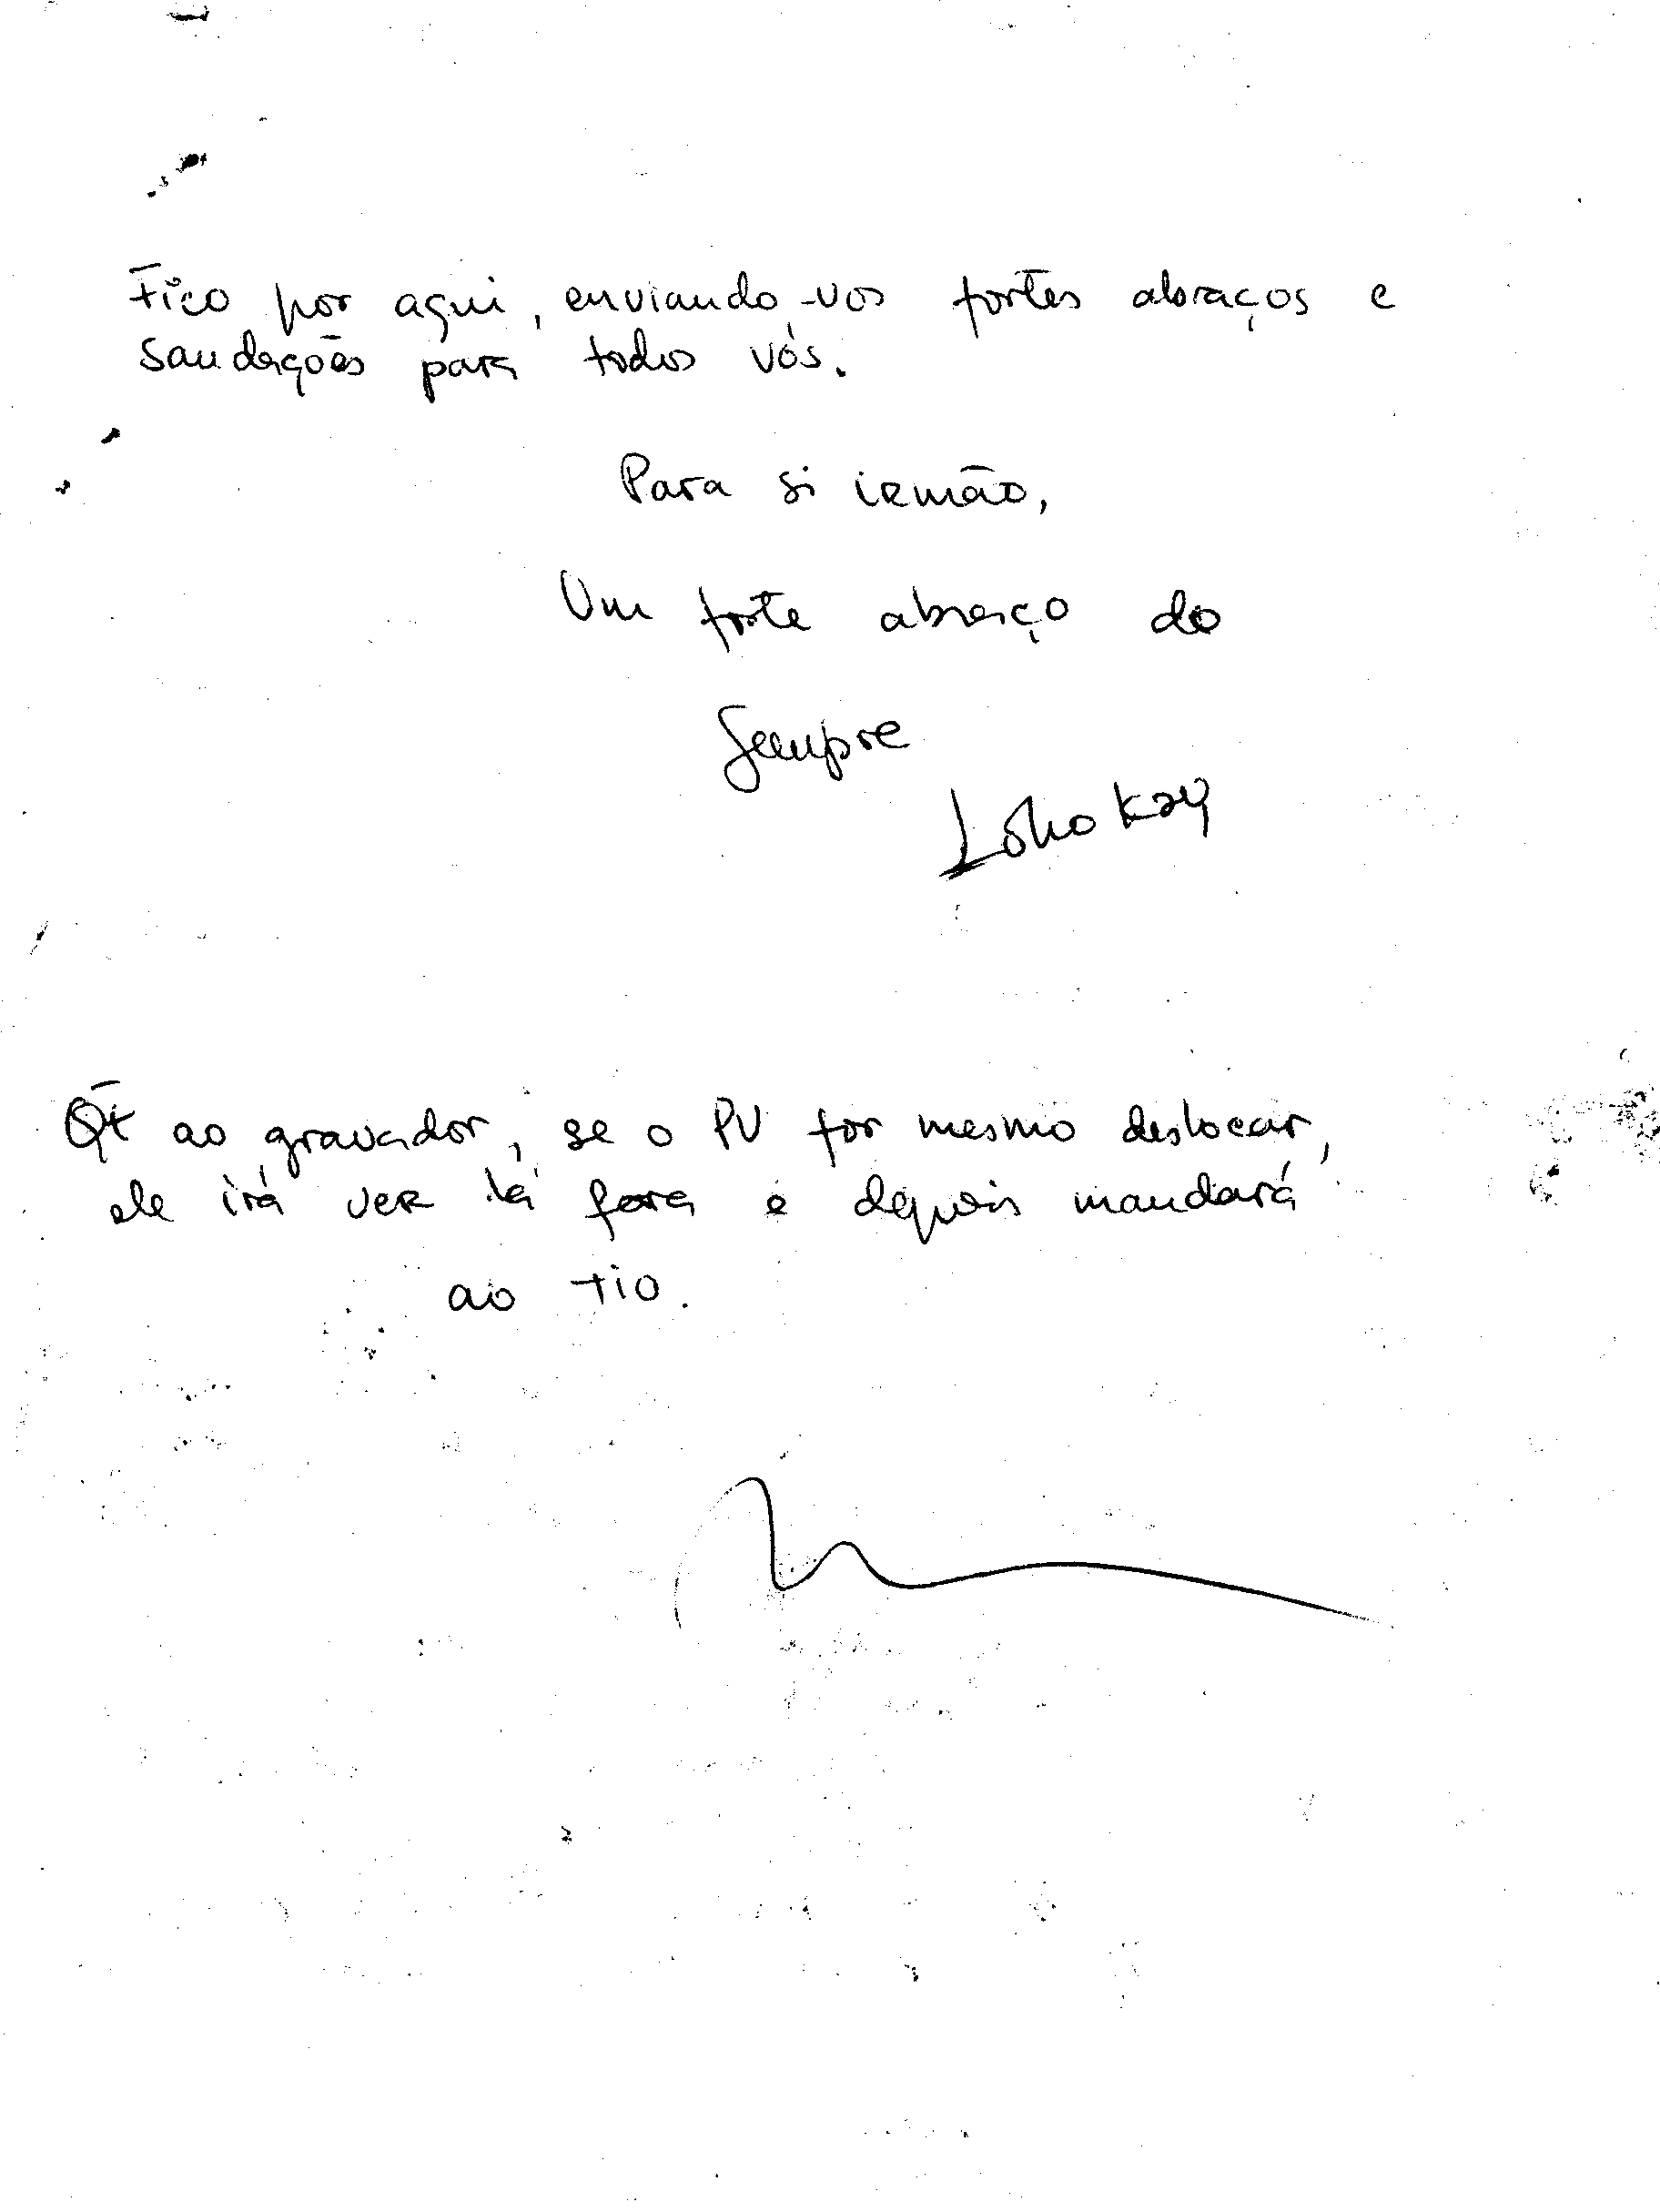 Fico por aqui, enviando-vos fortes abraços e
saudações para todos vós.
Para si irmão,
Um forte abraço do
Sempre
Loho Kay
Qt ao gravador, se o PV for mesmo deslocar,
ele irá ver lá fora e depois mandará
ao tio.